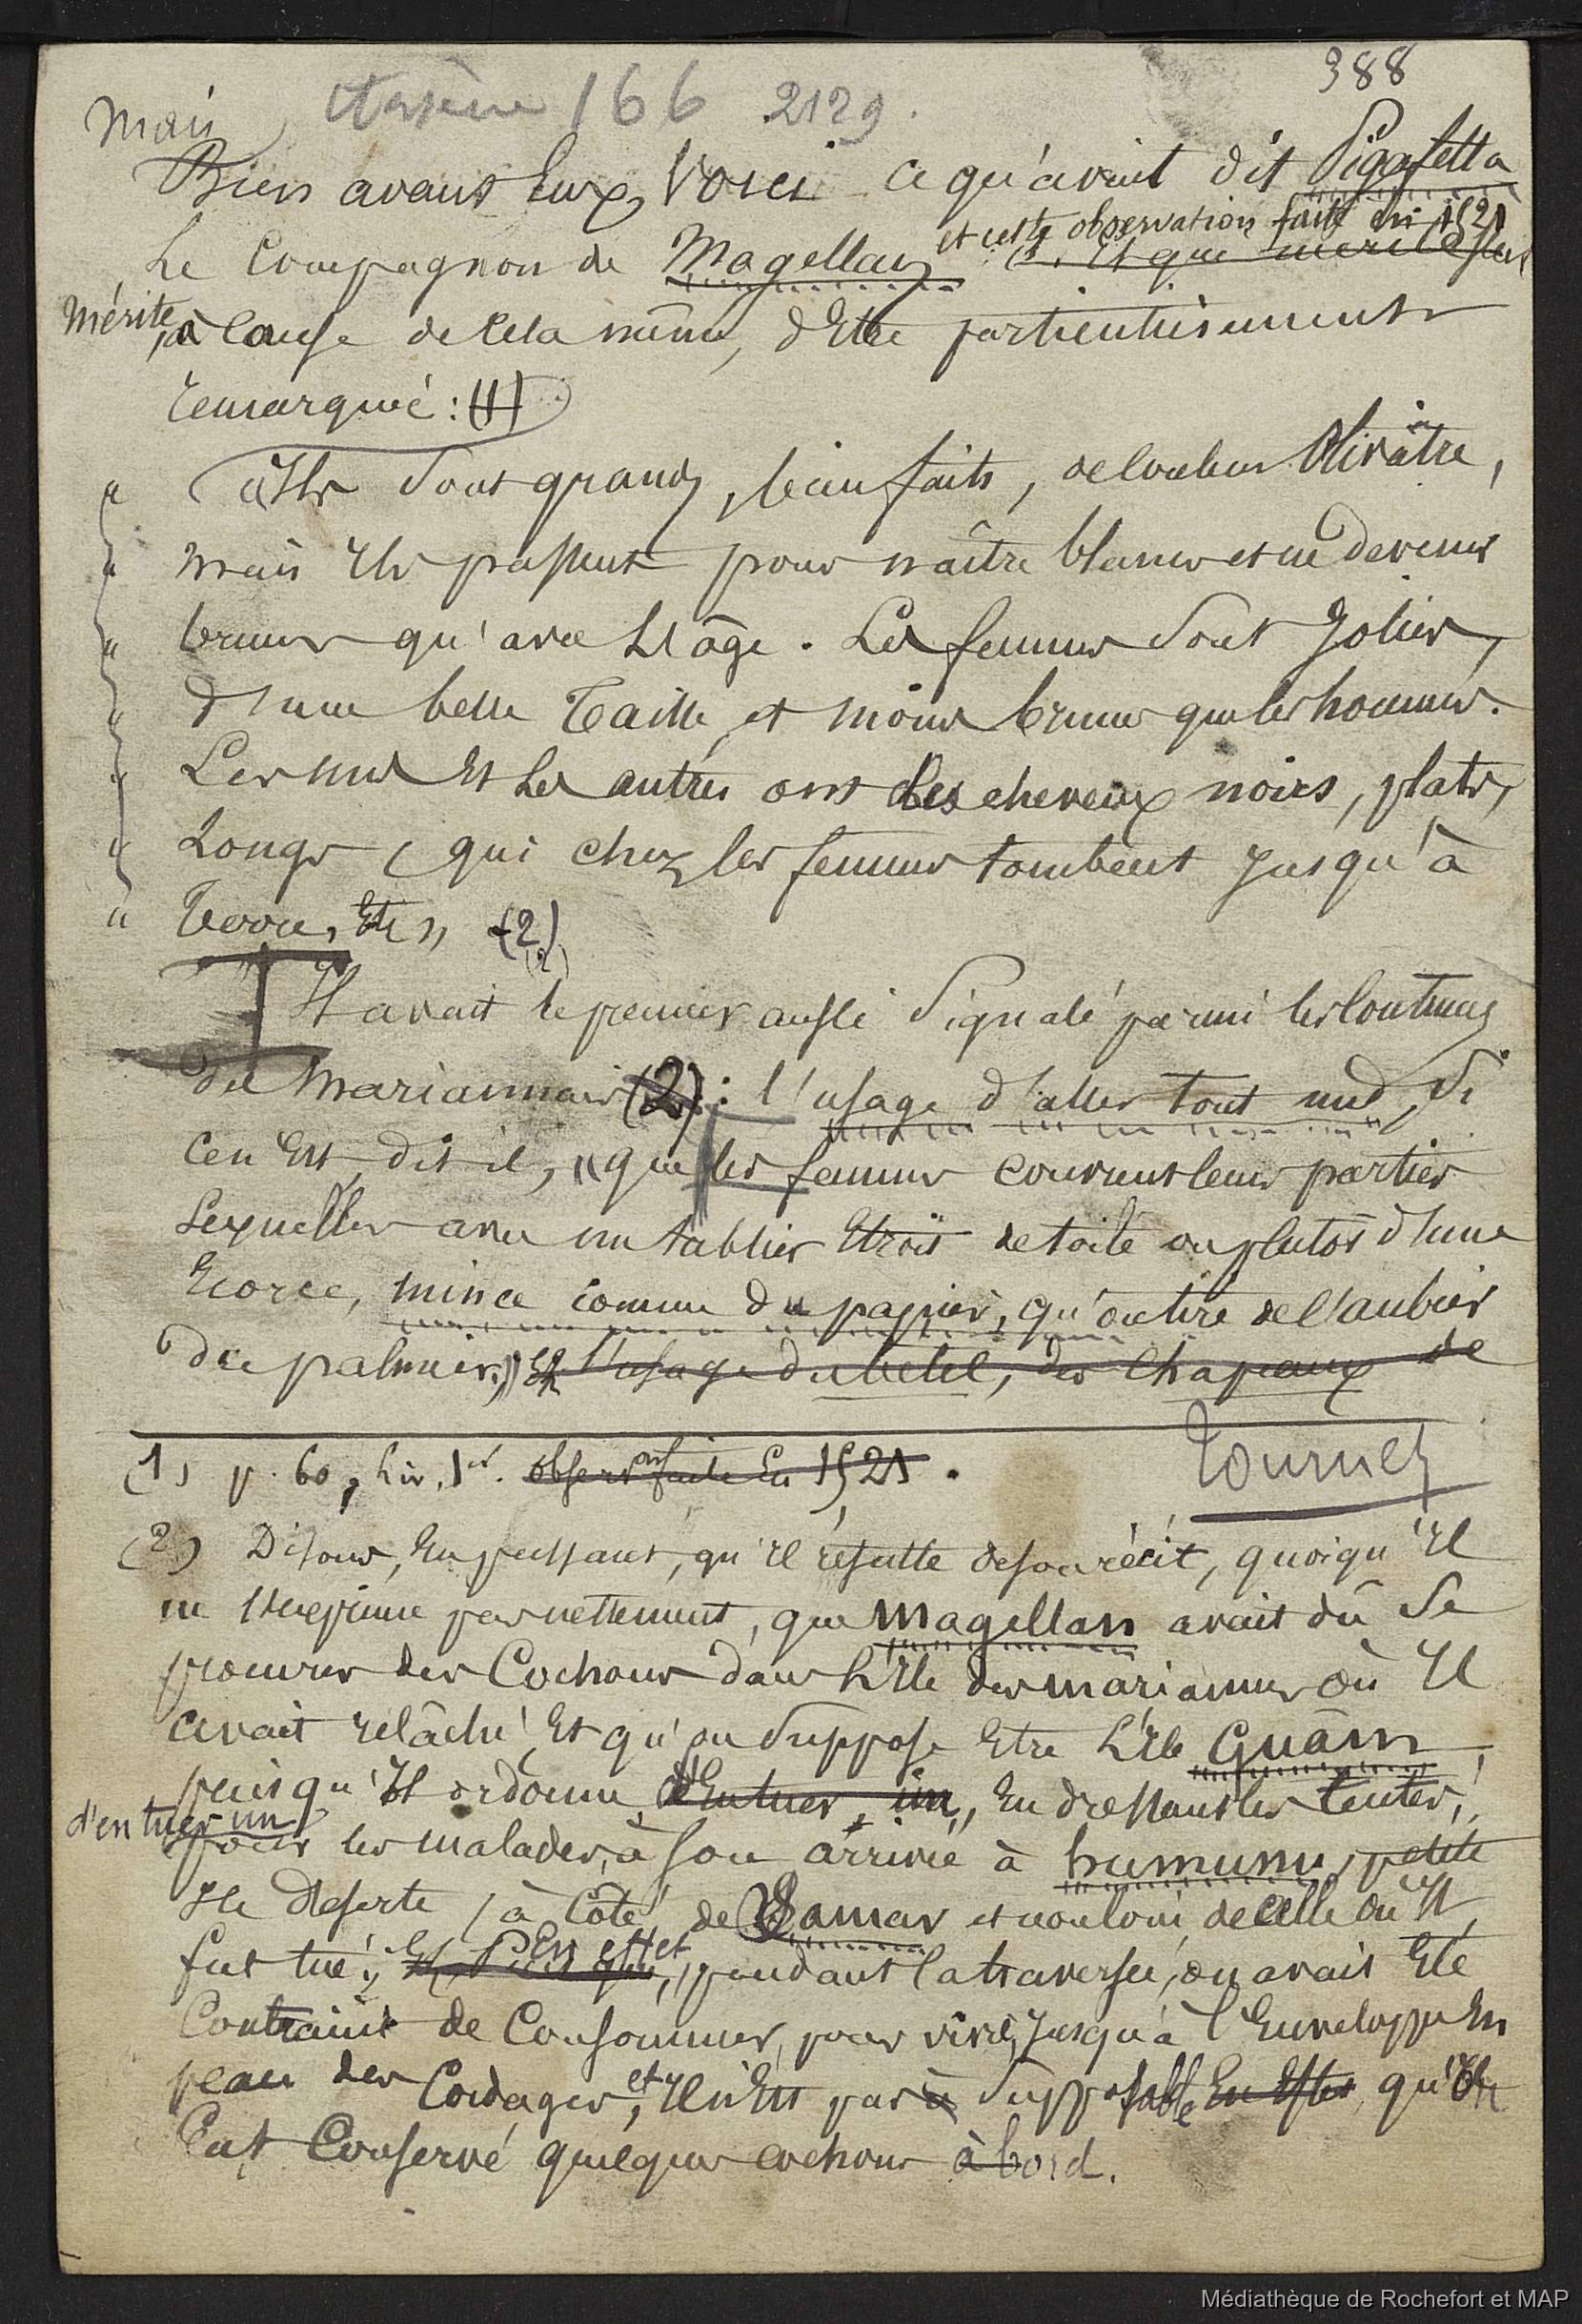 388
166 2129.
Mais
Bien avant Eux, Voici ce qu'avait dit Pigafetta
et cette observation faite en 1521
Le Compagnon de Magellan Et que mérite
mérite, à Cause de Cela même, d'Etre particulièrement
remarqué : (1)
"Ils Sont grands, bienfaits, de Couleur Olivâtre,
" mais Ils passent pour naître blancs et ne devenir
" bruns qu'avec L'âge. Les femmes Sont Jolies,
" d'une belle Taille, et moins brunes que les hommes.
" Les uns Et Les autres ont des cheveux noirs, plats,
" Longs, qui chez les femmes tombent Jusqu'à
" Terre, Etc" (2)
Il avait le premier aussi Signalé parmi les Coutumes
des Mariannais (2) : l'usage d'aller tout nud, Si
Ce n'Est, dit-il, "que les femmes couvrent leurs parties
Sexuelles avec un tablier Etroit de toile ou plutôt d'une
Ecorce, mince comme du papier, qu'on tire de l'aubier
du palmier;" Et l'usage du betel, des Chapeaux de
(1) p. 60, Liv. 1er. observon faite En 1521.
Tournez
(2) Disons, En passant, qu'Il résulte de son récit, quoiqu'Il
ne l'Exprime pas nettement, que Magellan avait dû Se
procurer des Cochons dans L'Ile des Mariannes où Il
avait relâché, Et qu'on Suppose Etre L'Ile Guam,
puisqu'Il ordonna d'En tuer un, En dressant les tentes,
d'en tuer un
pour les malades, à Son arrivée à humunu, petite
Ile déserte, à Côté de Samar et non loin de celle où Il
fut tué; En effet, pendant la traversée, on avait Eté
Contraint de Consommer, pour vivre, Jusqu'à l'Enveloppe En
peau des Cordages, et Il n'Est pas à Supposable En Effet qu'On
Eut Conservé quelques cochons à bord.
Médiathèque de Rochefort et MAP